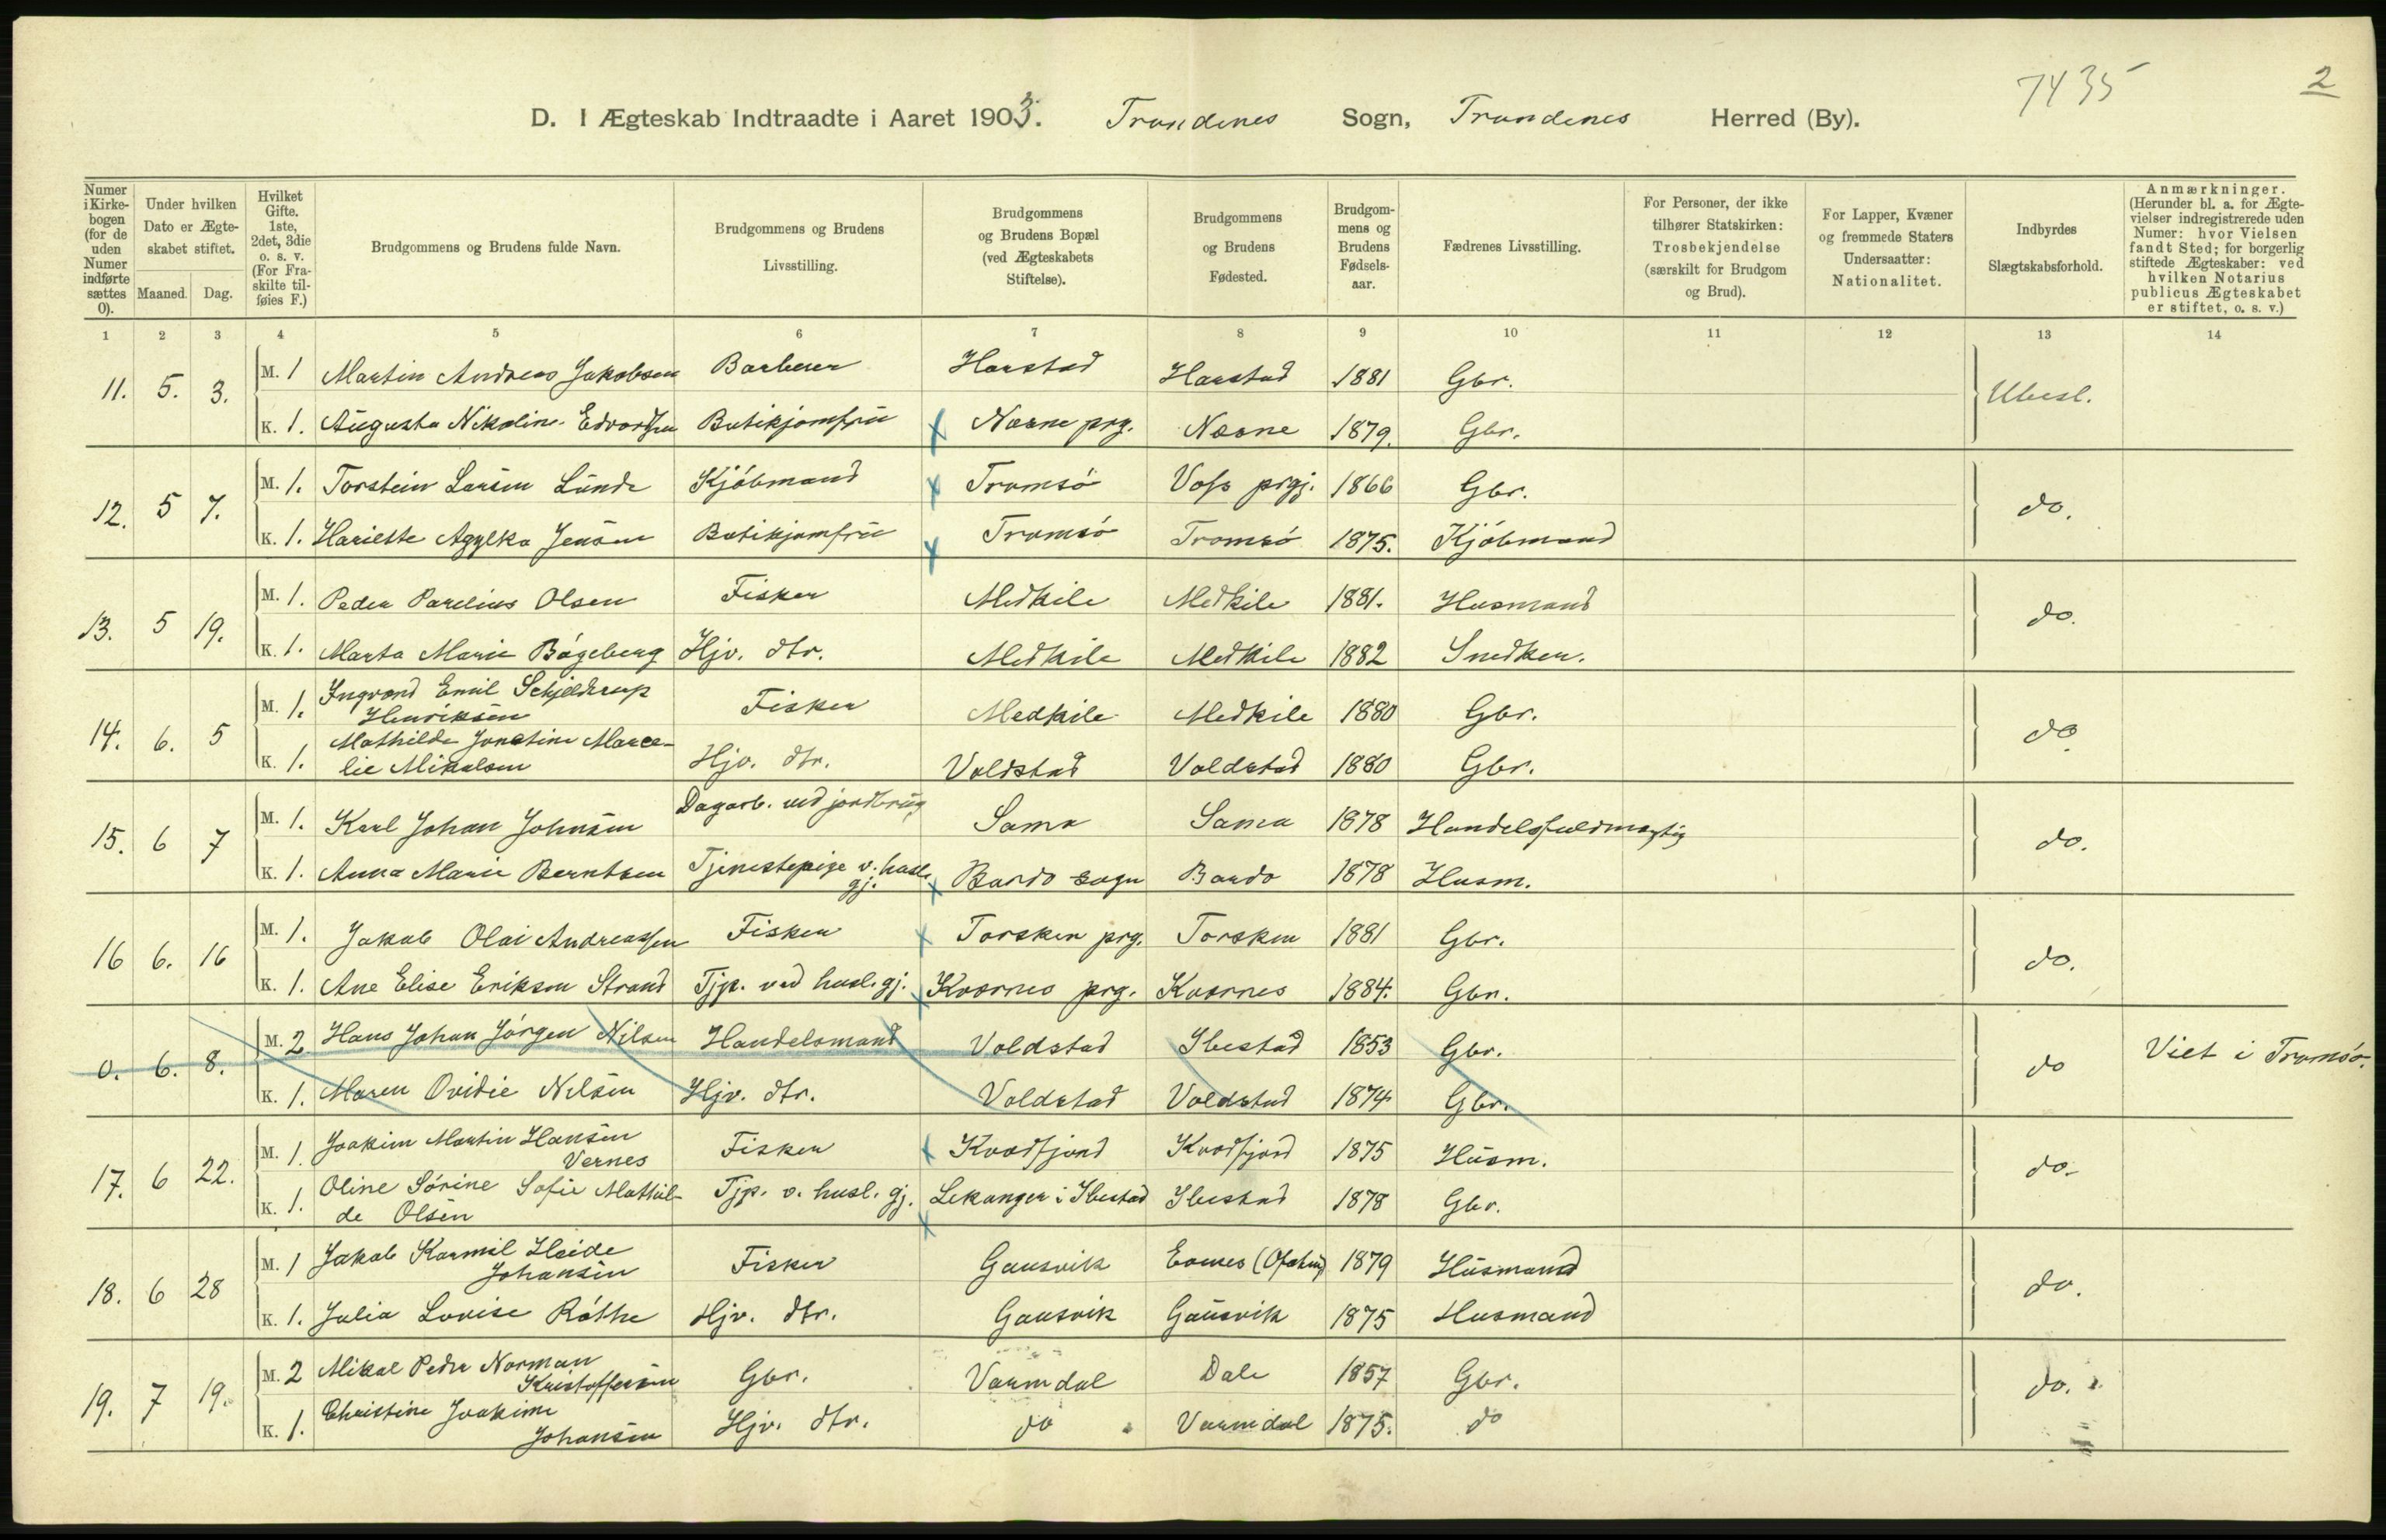 7435
2
D. I Ægteskab Indtraadte i Aaret 1903. Trondenes Sogn, Trondenes Herred (By).
Numer i Kirkebogen (for de uden Numer indførte sættes 0).
Under hvilken Dato er Ægteskabet stiftet.
Maaned. Dag.
Hvilket Gifte. 1ste, 2det, 3die o. s. v. (For Fraskilte tilføies F.)
Brudgommens og Brudens fulde Navn.
Brudgommens og Brudens Livsstilling.
Brudgommens og Brudens Bopæl (ved Ægteskabets Stiftelse).
Brudgommens og Brudens Fødested.
Brudgommens og Brudens Fødselsaar.
Fædrenes Livsstilling.
For Personer, der ikke tilhører Statskirken: Trosbekjendelse (særskilt for Brudgom og Brud).
For Lapper, Kvæner og fremmede Staters Undersaatter: Nationalitet.
Indbyrdes Slægtskabsforhold.
Anmærkninger. (Herunder bl. a. for Ægtevielser indregistrerede uden Numer: hvor Vielsen fandt Sted; for borgerlig stiftede Ægteskaber: ved hvilken Notarius publicus Ægteskabet er stiftet, o. s. v.)
1 2 3 4 5 6 7 8 9 10 11 12 13 14
11. 5. 3. M. 1 Martin Andreas Jakobsen Barberer Harstad Harstad 1881 Gbr. Ubesl.
K. 1. Augusta Nikoline Edvardsen Butikjomfru x Næsne prg. Næsne 1879. Gbr.
12. 5 7. M. 1. Torstein Larsen Lunde Kjöbmand x Tromsö Voss prgj. 1866 Gbr. do.
K. 1. Hariette Agylka Jensen Butikjomfru x Tromsö Tromsö 1875. Kjöbmand
13. 5 19. M. 1. Peder Parelius Olsen Fisker Medkile Medkile 1881. Husmand do.
K. 1. Marta Marie Bögeberg Hjv. dtr. Medkile Medkile 1882 Snedker.
14. 6. 5 M. 1. Ingvard Emil Schjelderup Henriksen Fisker Medkile Medkile 1880 Gbr. do
K. 1. Mathilde Jonetine Marcelie Mikalsen Hjv. dtr. Voldstad Voldstad 1880 Gbr.
15. 6 7 M. 1. Karl Johan Johnsen Dagarb. ved jordbrug Sama Sama 1878 Handelsfuldmægtig do.
K. 1. Anna Marie Berntsen Tjenestepige v. husl. gj. x Bardo sogn Bardo 1878 Husm.
16 6. 16 M. 1. Jakob Olai Andreassen Fisker x Torsken prg. Torsken 1881 Gbr. do.
K. 1. Ane Elise Eriksen Strand Tjp. ved husl. gj. x Kværnes prg. Kværnes 1884. Gbr.
0. 6. 8. M. 2 Hans Johan Jörgen Nilsen Handelsmand Voldstad Ibestad 1853 Gbr. do Viet i Tromsö.
K. 1. Maren Ovidie Nilsen Hjv. dtr. Voldstad Voldstad 1874 Gbr.
17. 6 22. M. 1. Joakim Martin Hansen Vernes Fisker x Kvædfjord Kvædfjord 1875 Husm. do.
K. 1. Oline Sörine Sofie Mathilde Olsen Tjp. v. husl. gj. x Lekanger i Ibestad Ibestad 1878 Gbr.
18. 6 28 M. 1 Jakob Karmil Heide Johansen Fisker Gausvik Evenes (Ofoten) 1879 Husmand do.
K. 1. Julia Lovise Röthe Hjv. dtr. Gausvik Gausvik 1875 Husmand
19. 7 19. M. 2 Mikal Peder Norman Kristoffersen Gbr. Varmdal Dale 1857 Gbr. do.
K. 1. Christine Joakime Johansen Hjv. dtr. do Varmdal 1875. do